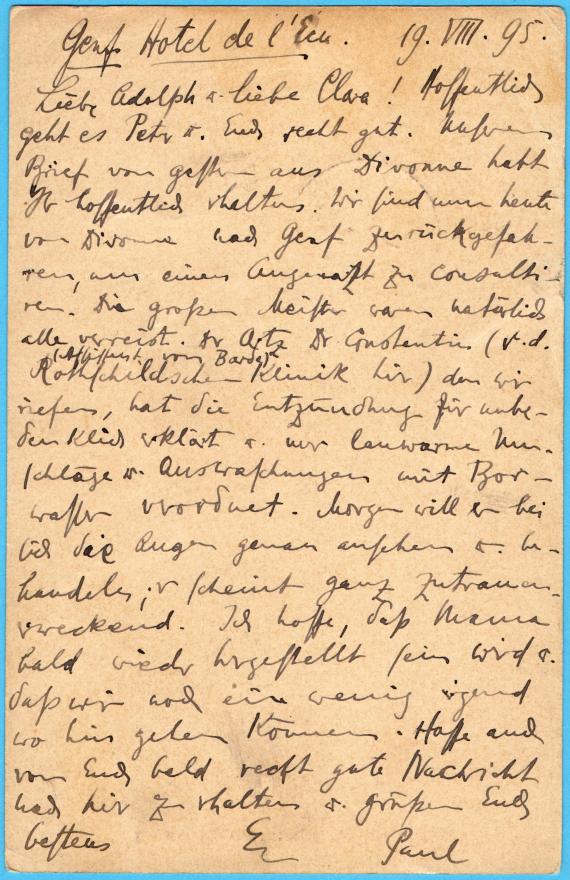 Genf Hotel de l'Ecu. 19. VIII. 95.
Liebe Adolph u. liebe Clara! Hoffentlich
geht es Petr u. Euch recht gut. Unseren
Brief von gestern aus Divonne habt
Ihr hoffentlich erhalten. Wir sind nun heute
von Divonne nach Genf zurückgefah-
ren, um einen Augenarzt zu consulti-
ren. Die großen Meister waren natürlich
alle verreist. Dr Arts Dr Constentin (v. d.
(Assistent von Barde)
Rothschildschen Klinik hier) den wir
riefen, hat die Entzündung für unbe-
denklich erklärt u. nur lauwarme Um-
schläge u. Auswaschungen mit Bor-
wasser verordnet. Morgen will er bei
die Augen genau ansehen u. be-
handeln; er scheint ganz zutrauen-
erweckend. Ich hoffe, daß Mama
bald wieder hergestellt sein wird u.
daß wir noch ein wenig irgend
wo hin gehen können. Hoffe auch
von Euch bald recht gute Nachricht
nach hier zu erhalten u. grüßen Euch
bestens Paul